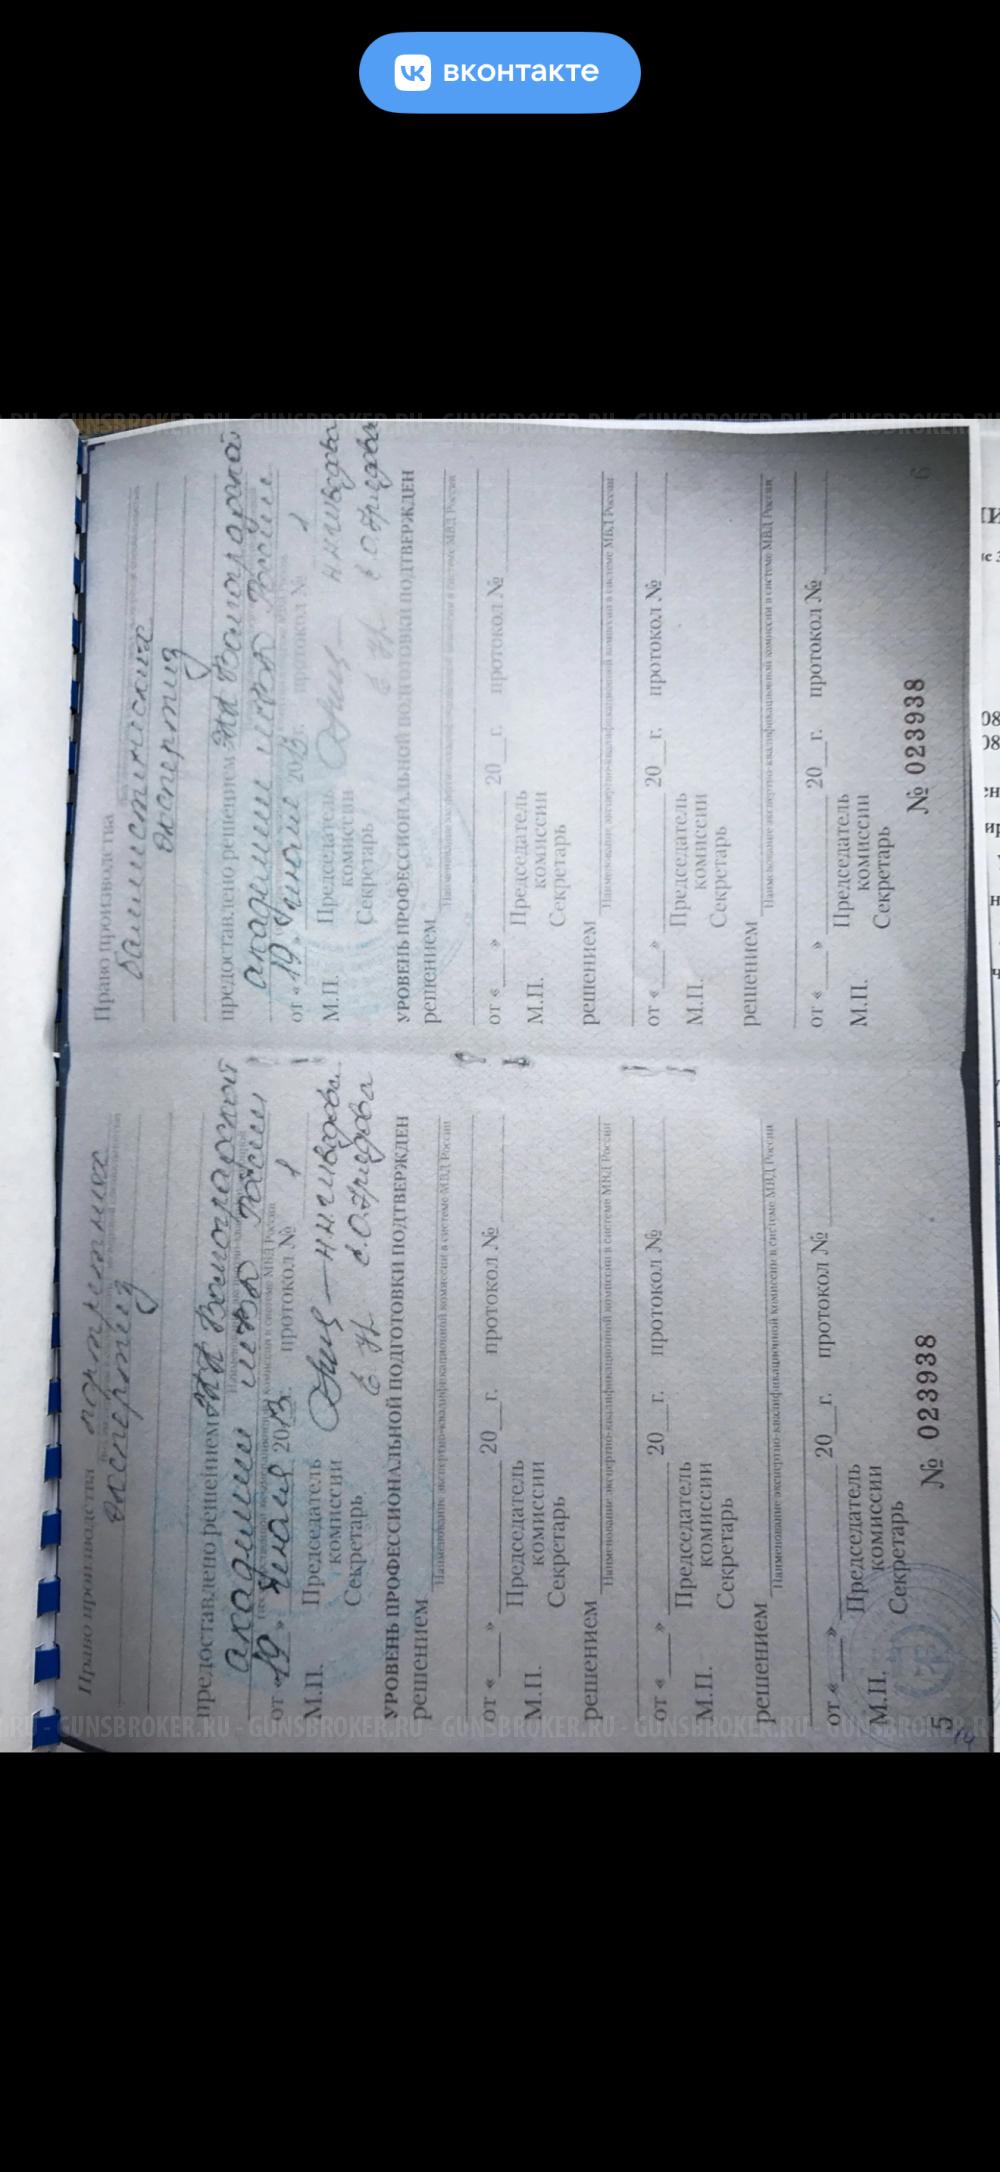 вконтакте
GUNSBROKER.RU - GUNSBROKER.RU - GUNSBROKER.RU - GUNSBROKER.RU - GUNSBROKER.RU
Право производства портретных
экспертиз
предоставлено решением Волгоградской
академии МВД России
от «19» июля 2013г. протокол № 1
М.П. Председатель
комиссии
Секретарь
УРОВЕНЬ ПРОФЕССИОНАЛЬНОЙ ПОДГОТОВКИ ПОДТВЕРЖДЕН
решением
Наименование экспертно-квалификационной комиссии в системе МВД России
от «___» 20__г. протокол №
М.П. Председатель
комиссии
Секретарь
решением
Наименование экспертно-квалификационной комиссии в системе МВД России
от «___» 20__г. протокол №
М.П. Председатель
комиссии
Секретарь
решением
Наименование экспертно-квалификационной комиссии в системе МВД России
от «___» 20__г. протокол №
М.П. Председатель
комиссии
Секретарь
5 № 023938
14
Право производства
баллистических
экспертиз
предоставлено решением Волгоградской
академии МВД России
от «19» июля 2013 протокол № 1
М.П. Председатель
комиссии
Секретарь
УРОВЕНЬ ПРОФЕССИОНАЛЬНОЙ ПОДГОТОВКИ ПОДТВЕРЖДЕН
решением
Наименование экспертно-квалификационной комиссии в системе МВД России
от «___» 20__г. протокол №
М.П. Председатель
комиссии
Секретарь
решением
Наименование экспертно-квалификационной комиссии в системе МВД России
от «___» 20__г. протокол №
М.П. Председатель
комиссии
Секретарь
решением
Наименование экспертно-квалификационной комиссии в системе МВД России
от «___» 20__г. протокол №
М.П. Председатель
комиссии
Секретарь
№ 023938 6
GUNSBROKER.RU - GUNSBROKER.RU - GUNSBROKER.RU - GUNSBROKER.RU - GUNSBROKER.RU